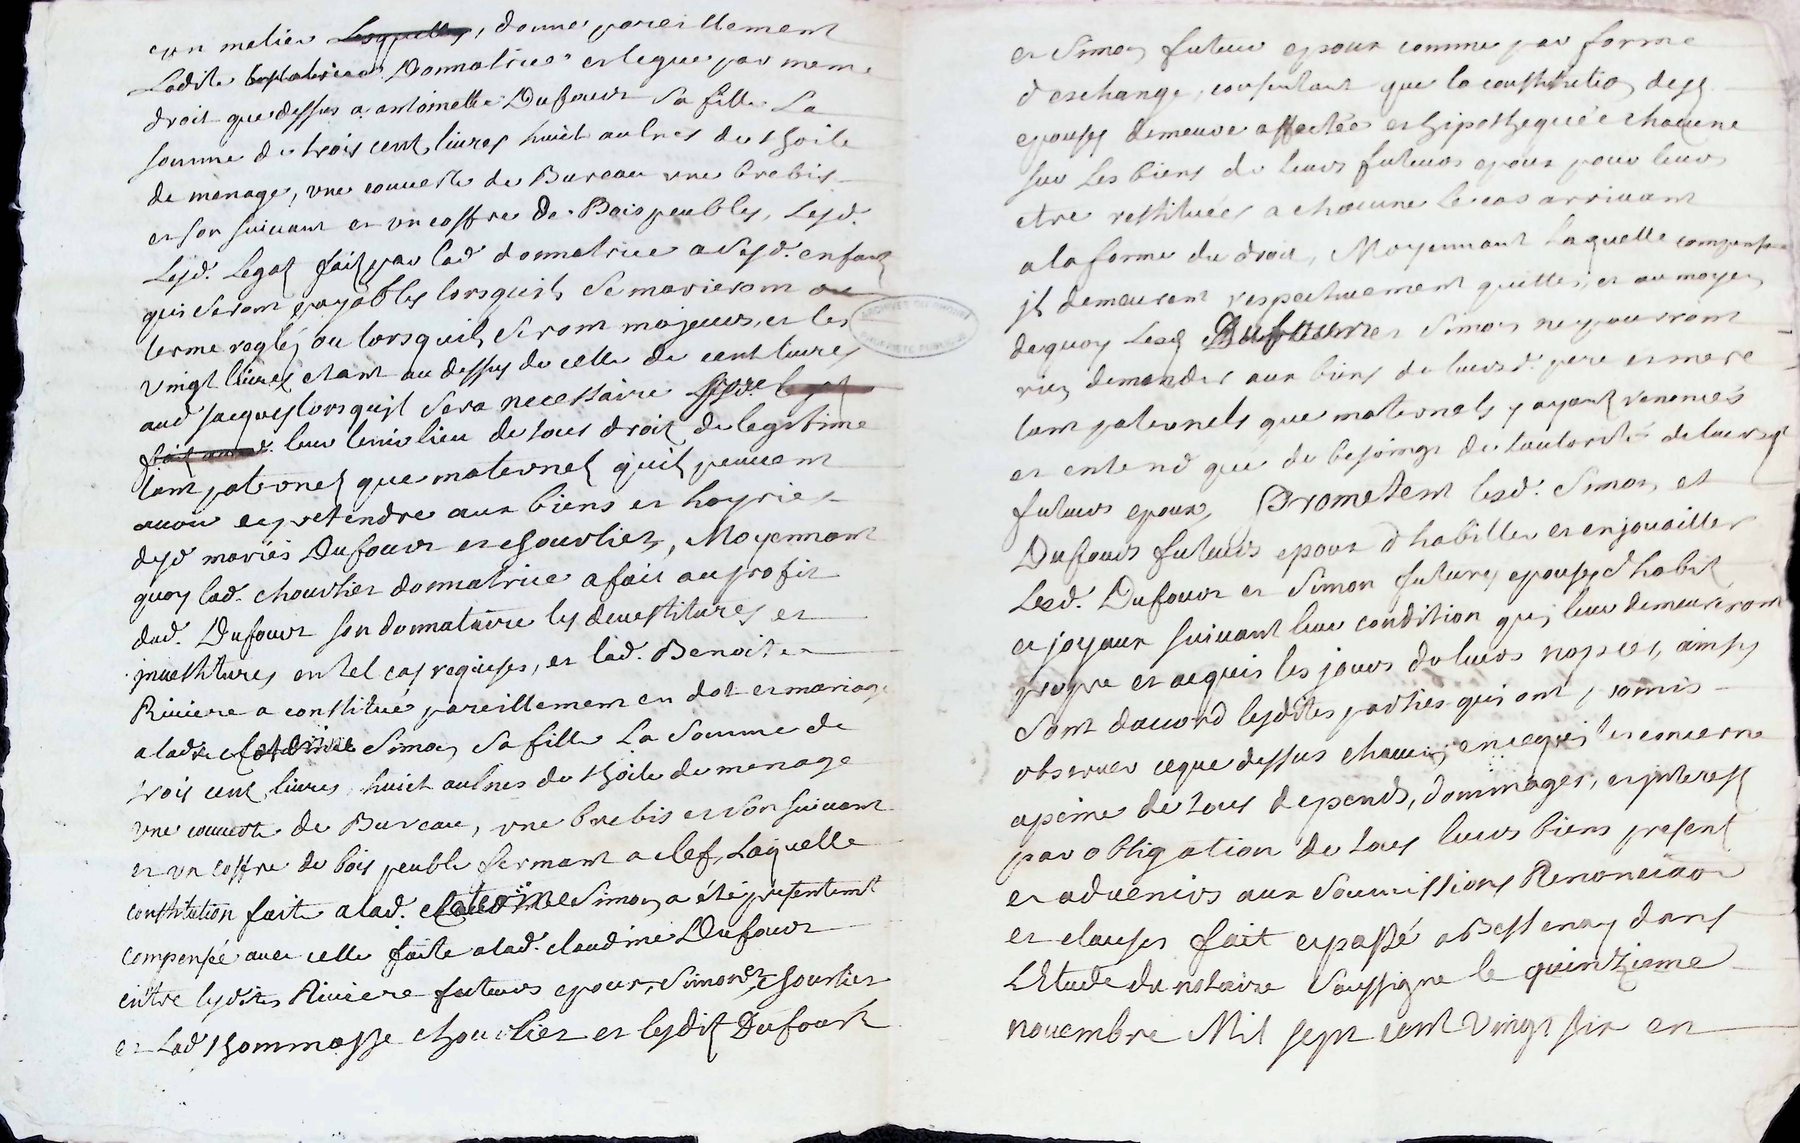 un metier Lesquelles, donne pareillement
Ladite testatrice Donnatrice et legue par meme
droit que dessus a antoinette Dufour Sa fille La
somme de trois cent livres huict aulnes de thoile
de menage, une couverte de Bureau une brebis
et son suivant et un coffre de Bois peubles, Lesd.
Lesd. Legat fait par lad. donnatrice a Sesd. enfants
qui seront payables lorsquils se marieront au
terme reglés ou lorsquils seront majeurs, et les
vingt livres etant au dessus de celle de cent livres
aud Jacques lorsquil sera necessaire
leur tenir lieu de tous droit de legitime
tant paternel que maternel quil peuvent
avoir et pretendre aux biens et hoyries
desd mariés Dufour et chourlier, Moyennant
quoy lad. chourlier donnatrice a fait au profit
dud. Dufour son donnataire les devestitures et
jnvestitures en tel cas requises, et lad. Benoite
Riviere a constitué pareillement en dot et mariage
a lad. Simon Sa fille La Somme de
trois cent livres huict aulnes de thoile de menage
une couverte de Bureau, une brebis et son suivant
et un coffre de bois peuble fermant a clef, Laquelle
constitution faite a lad. Simon a été presentemt
compensée avec celle faite a lad. claudine Dufour
entre lesdits Riviere futurs epoux, Simon et chourlier
et Lad thommasse chourlier et lesdit Dufour
et Simon futur epoux comme par forme
d'eschange, consentant que la constitution desd
epouses demeure affectée et hipothequée chacune
sur les biens de leurs futurs epoux pour leurs
etre restituées a chacune le cas arrivant
a la forme du droit, Moyennant Laquelle compensa
jls demeurent respectivement quittes, et au moyen
de quoy Lesd Dufour et Simon ne pourront
rien demander aux biens de leurs d. pere et mere
tant paternels que maternels y ayant renoncés
et entend que de besoingt de lautorité de leursd
futurs epoux, Prometent lesd. Simon et
Dufour futurs epoux d'habiller et enjouailler
Lesd. Dufour et Simon futures epouses d'habit
et joyaux suivant leur condition qui leur demeureront
propre et acquis les jours de leurs nopces, ainsy
sont daccord lesdites parties qui ont promis
observer ceque dessus chacun en ce qui les concerne
a peine de tous depends, dommages, et jnterest
par obligation de tous leurs biens present
et advenirs aux Soumissions Renonciaon
et clauses fait et passé a Bessenay dans
L'Etude du notaire Soussigne le quinzieme
novembre Mil sept cent vingt six en